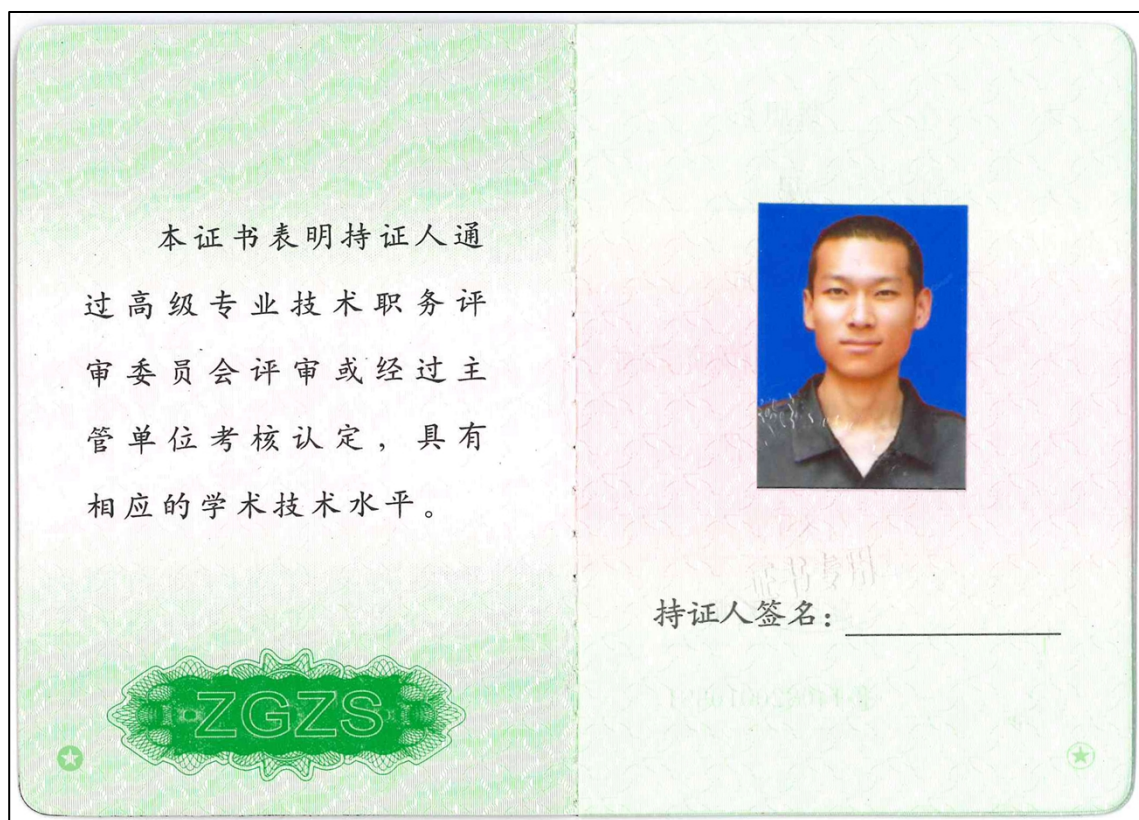 本证书表明持证人通
过高级专业技术职务评
审委员会评审或经过主
管单位考核认定，具有
相应的学术技术水平。
ZGZS
证书专用
持证人签名：